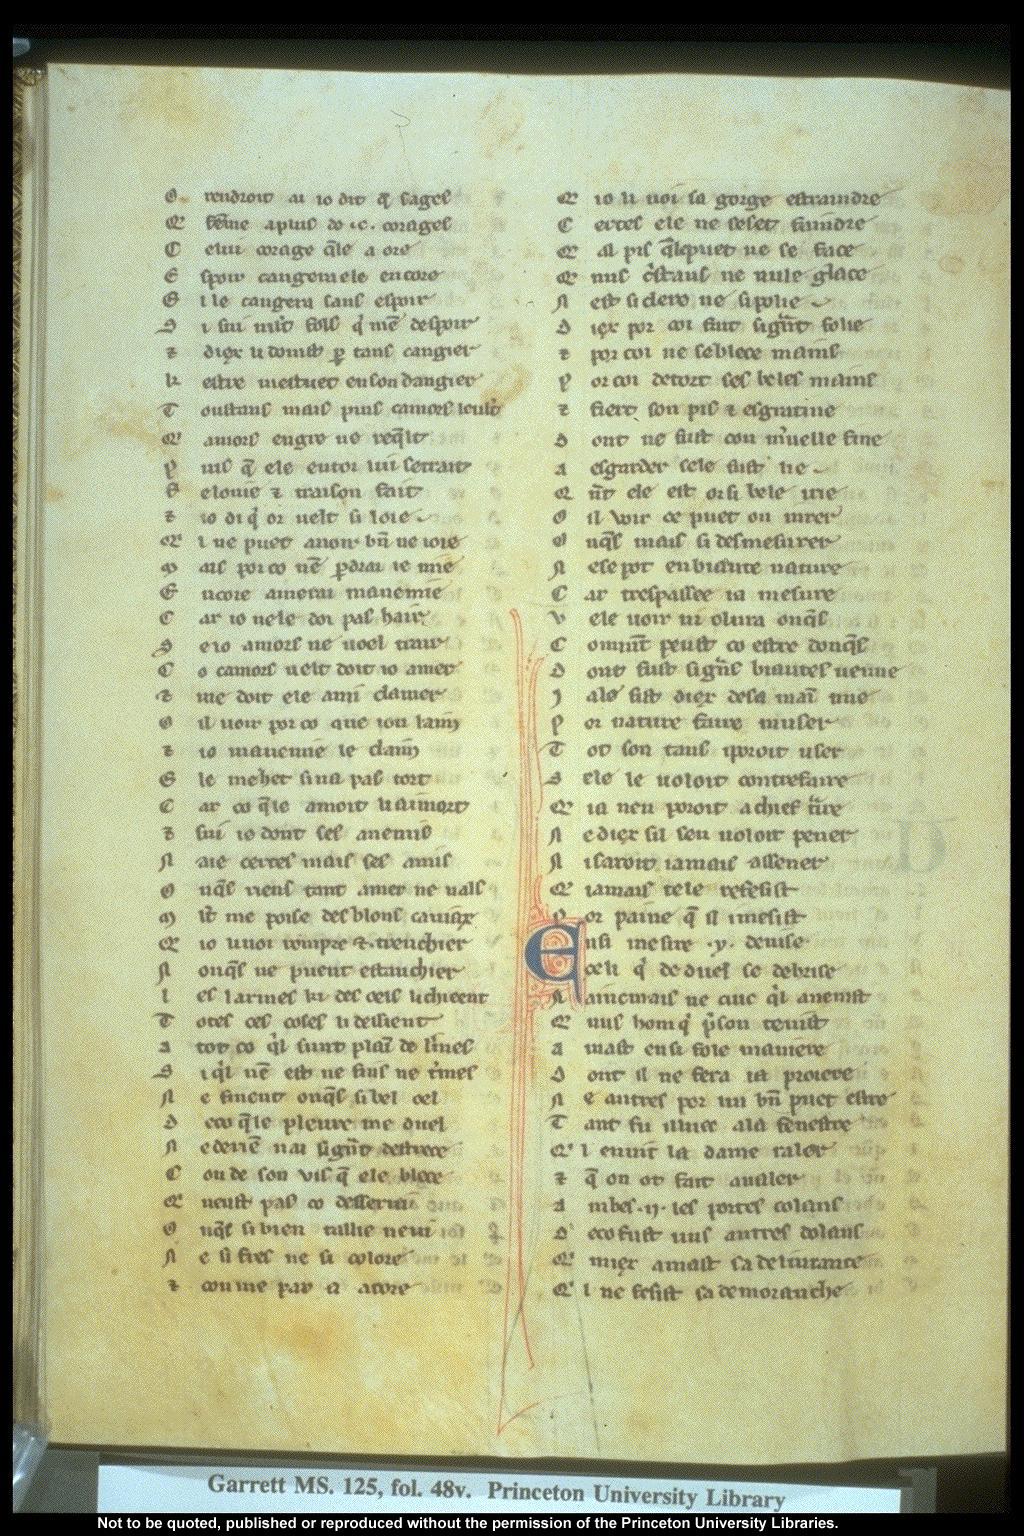 O rendroit ai io dit q̄ sagel
Q̄ fēme a pluis de .c. coragel
C elui corage q̄le a ore
E spoir cangera ele encore
E l le cangera sans espoir
S i sui mlt̄ fols q̇ mē despoir
⁊ diex li doinst p̄ tans cangier
k estre mestuet en son dangier
T oustans mais puis camors leult
Q amors engre ne reqlt
P uis q̄ ele entor lui se trait
F elonie ⁊ traison fait
⁊ io di q̇ or uelt si loie
Q i ne puet auoir bn̄ ne ioie
M ais por co nē p̄drai ie mie
E ncore amerai manemie
C ar io ne le doi pas hair
S e io amors ne uoel trair
C o camors uelt doit io amer
⁊ me doit ele ami clamer
O il uoir por co que iou laim
⁊ io manemie le claim
E le me het si na pas tort
C ar co q̄le amoit li ai mort
⁊ sui io dont ses anemis
N aie certes mais ses amis
O nq̄s riens tant amer ne uals
M lt̄ me poise des blons cauiax
Q io li uoi rompre ⁊ trenchier
N onq̄s ne puent estanchier
L es larmes ki des oels li chieent
T otes ces coses li dessient
A tot co q̇l sunt plai de l̄mes
S i q̇l nē est ne fins ne t̄mes
N e finent onq̄s si bel oel
D eco q̄le pleure me duel
N e de riē nai si gn̄t destrece
C on de son vis q̄ ele blece
Q neust pas co desserui
O nq̄s si bien taillie ne ui
N e si fres ne si colore
⁊ cou me par a acore
Q io li uoi sa gorge estraindre
C ertes ele ne se set faindre
Q al pis q̄lq̄ puet ne se face
Q nus c̓staus ne nule glace
N est si clere ne si polie
D iex por coi fait si gn̄t folie
⁊ por coi ne se blece mains
P or coi detort ses beles mains
⁊ fiert son pis ⁊ esgratine
D ont ne fust cou m̓uelle fine
A esgarder sele fust lie
Q n̄t ele est or si bele irie
O il voir ce puet on iurer
O nq̄s mais si desmesurer
N ese pot en biaute nature
C ar trespassee ia mesure
V ele uoir ni olura onq̄s
C omm̄t peust co estre donq̄s
D ont fust si gn̄s biautes uenue
J a le fist diex de sa main nue
P or nature faire muser
T ot son tans i poroit user
S ele le uoloit contrefaire
Q ia nen poroit a chief t̄ire
N e diex sil sen uoloit pener
N i saroit iamais assener
Q iamais tele refesist
P or paine q̄ il i mesist
E nsi mesire .y. deuise
Celi q̇ de duel se debrise
N ainc mais ne cuic q̇l auenist
Q nus hom q̇ p̓son tenist
A mast ensi fole maniere
D ont il ne fera ia proiere
N e autres por lui bn̄ puet estre
T ant fu illuec a la fenestre
Q l enuit la dame raler
⁊ q̄ on ot fait aualer
A mbes .ij. les portes colans
D eco fust uns autres dolans
Q miex amast sa deliurance
Q l ne fesist sa demoranche
Garrett MS. 125, fol. 48v. Princeton University Library
Not to be quoted, published or reproduced without the permission of the Princeton University Libraries.